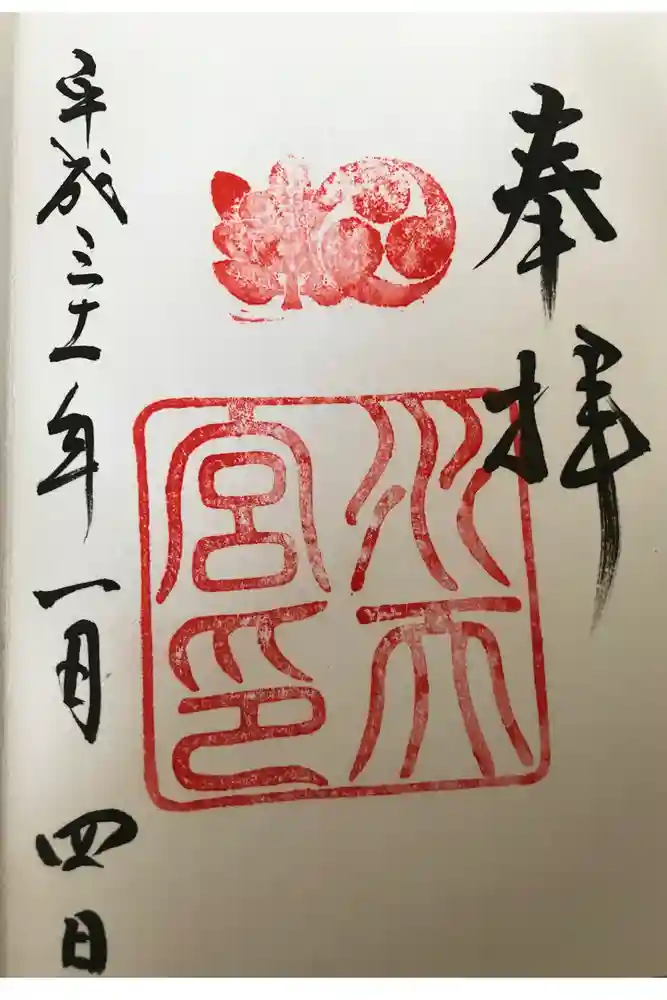 奉拝
水天
宮印
平成三十一年一月四日